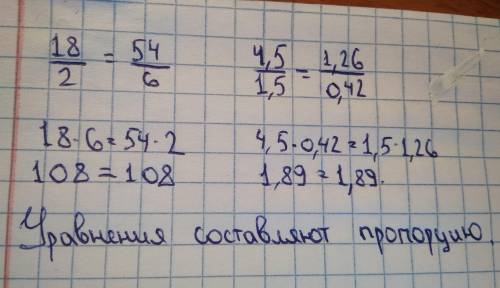 18/2 = 54/6
18·6=54·2
108=108
4,5/1,5 = 1,26/0,42
4,5·0,42=1,5·1,26
1,89=1,89.
Уравнения составляют пропорцию.